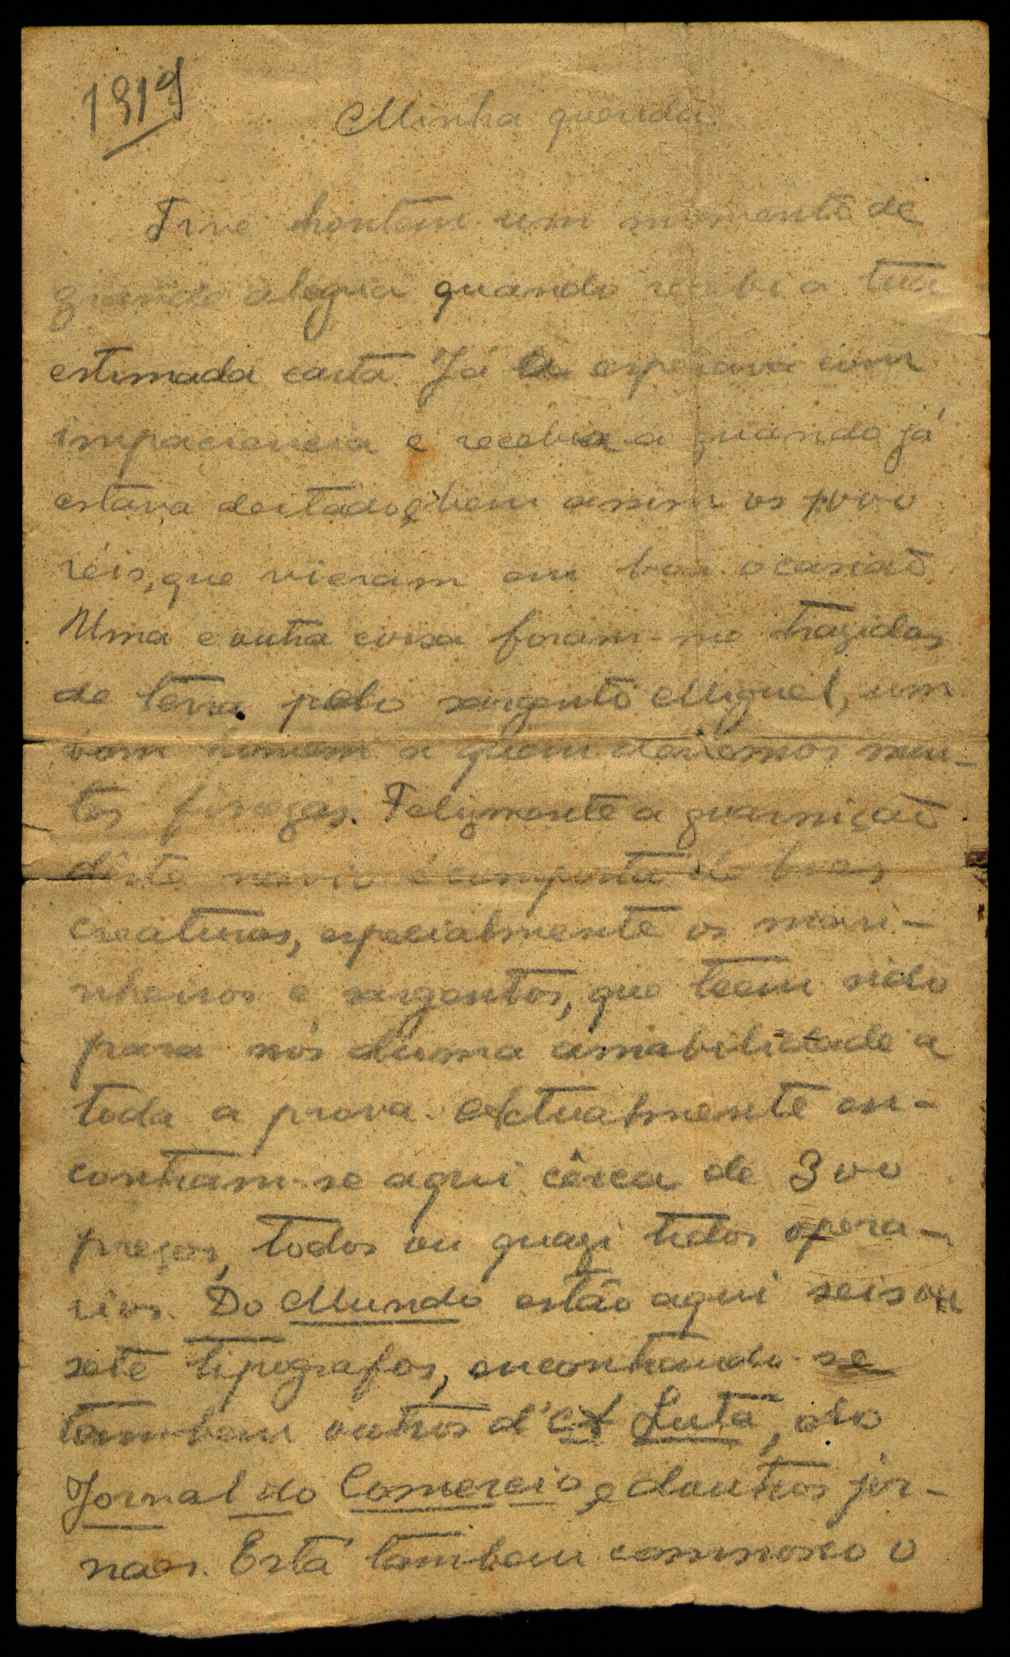 1919
Minha querida:
Tive hontem um momento de
grande alegria quando recebi a tua
estimada carta. Já a esperava com
impaciencia e recebi-a quando já
estava deitado, e bem assim os
réis, que vieram em boa ocasião.
Uma e outra coisa foram-me trazidas
de terra pelo sargento Miguel, um
bom homem a quem devemos mui-
tas finezas. Felizmente a guarnição
dêste navio é composta de boas
creaturas, especialmente os mari-
nheiros e sargentos, que teem sido
para nós duma amabilidade a
toda a prova. Actualmente en-
contram-se aqui cêrca de 300
prezos, todos ou quazi todos opera-
rios. Do Mundo estão aqui seis ou
sete tipografos, encontrando-se
tambem outros d'A Luta, do
Jornal do Comercio, e doutros jor-
naes. Está tambem comnosco o